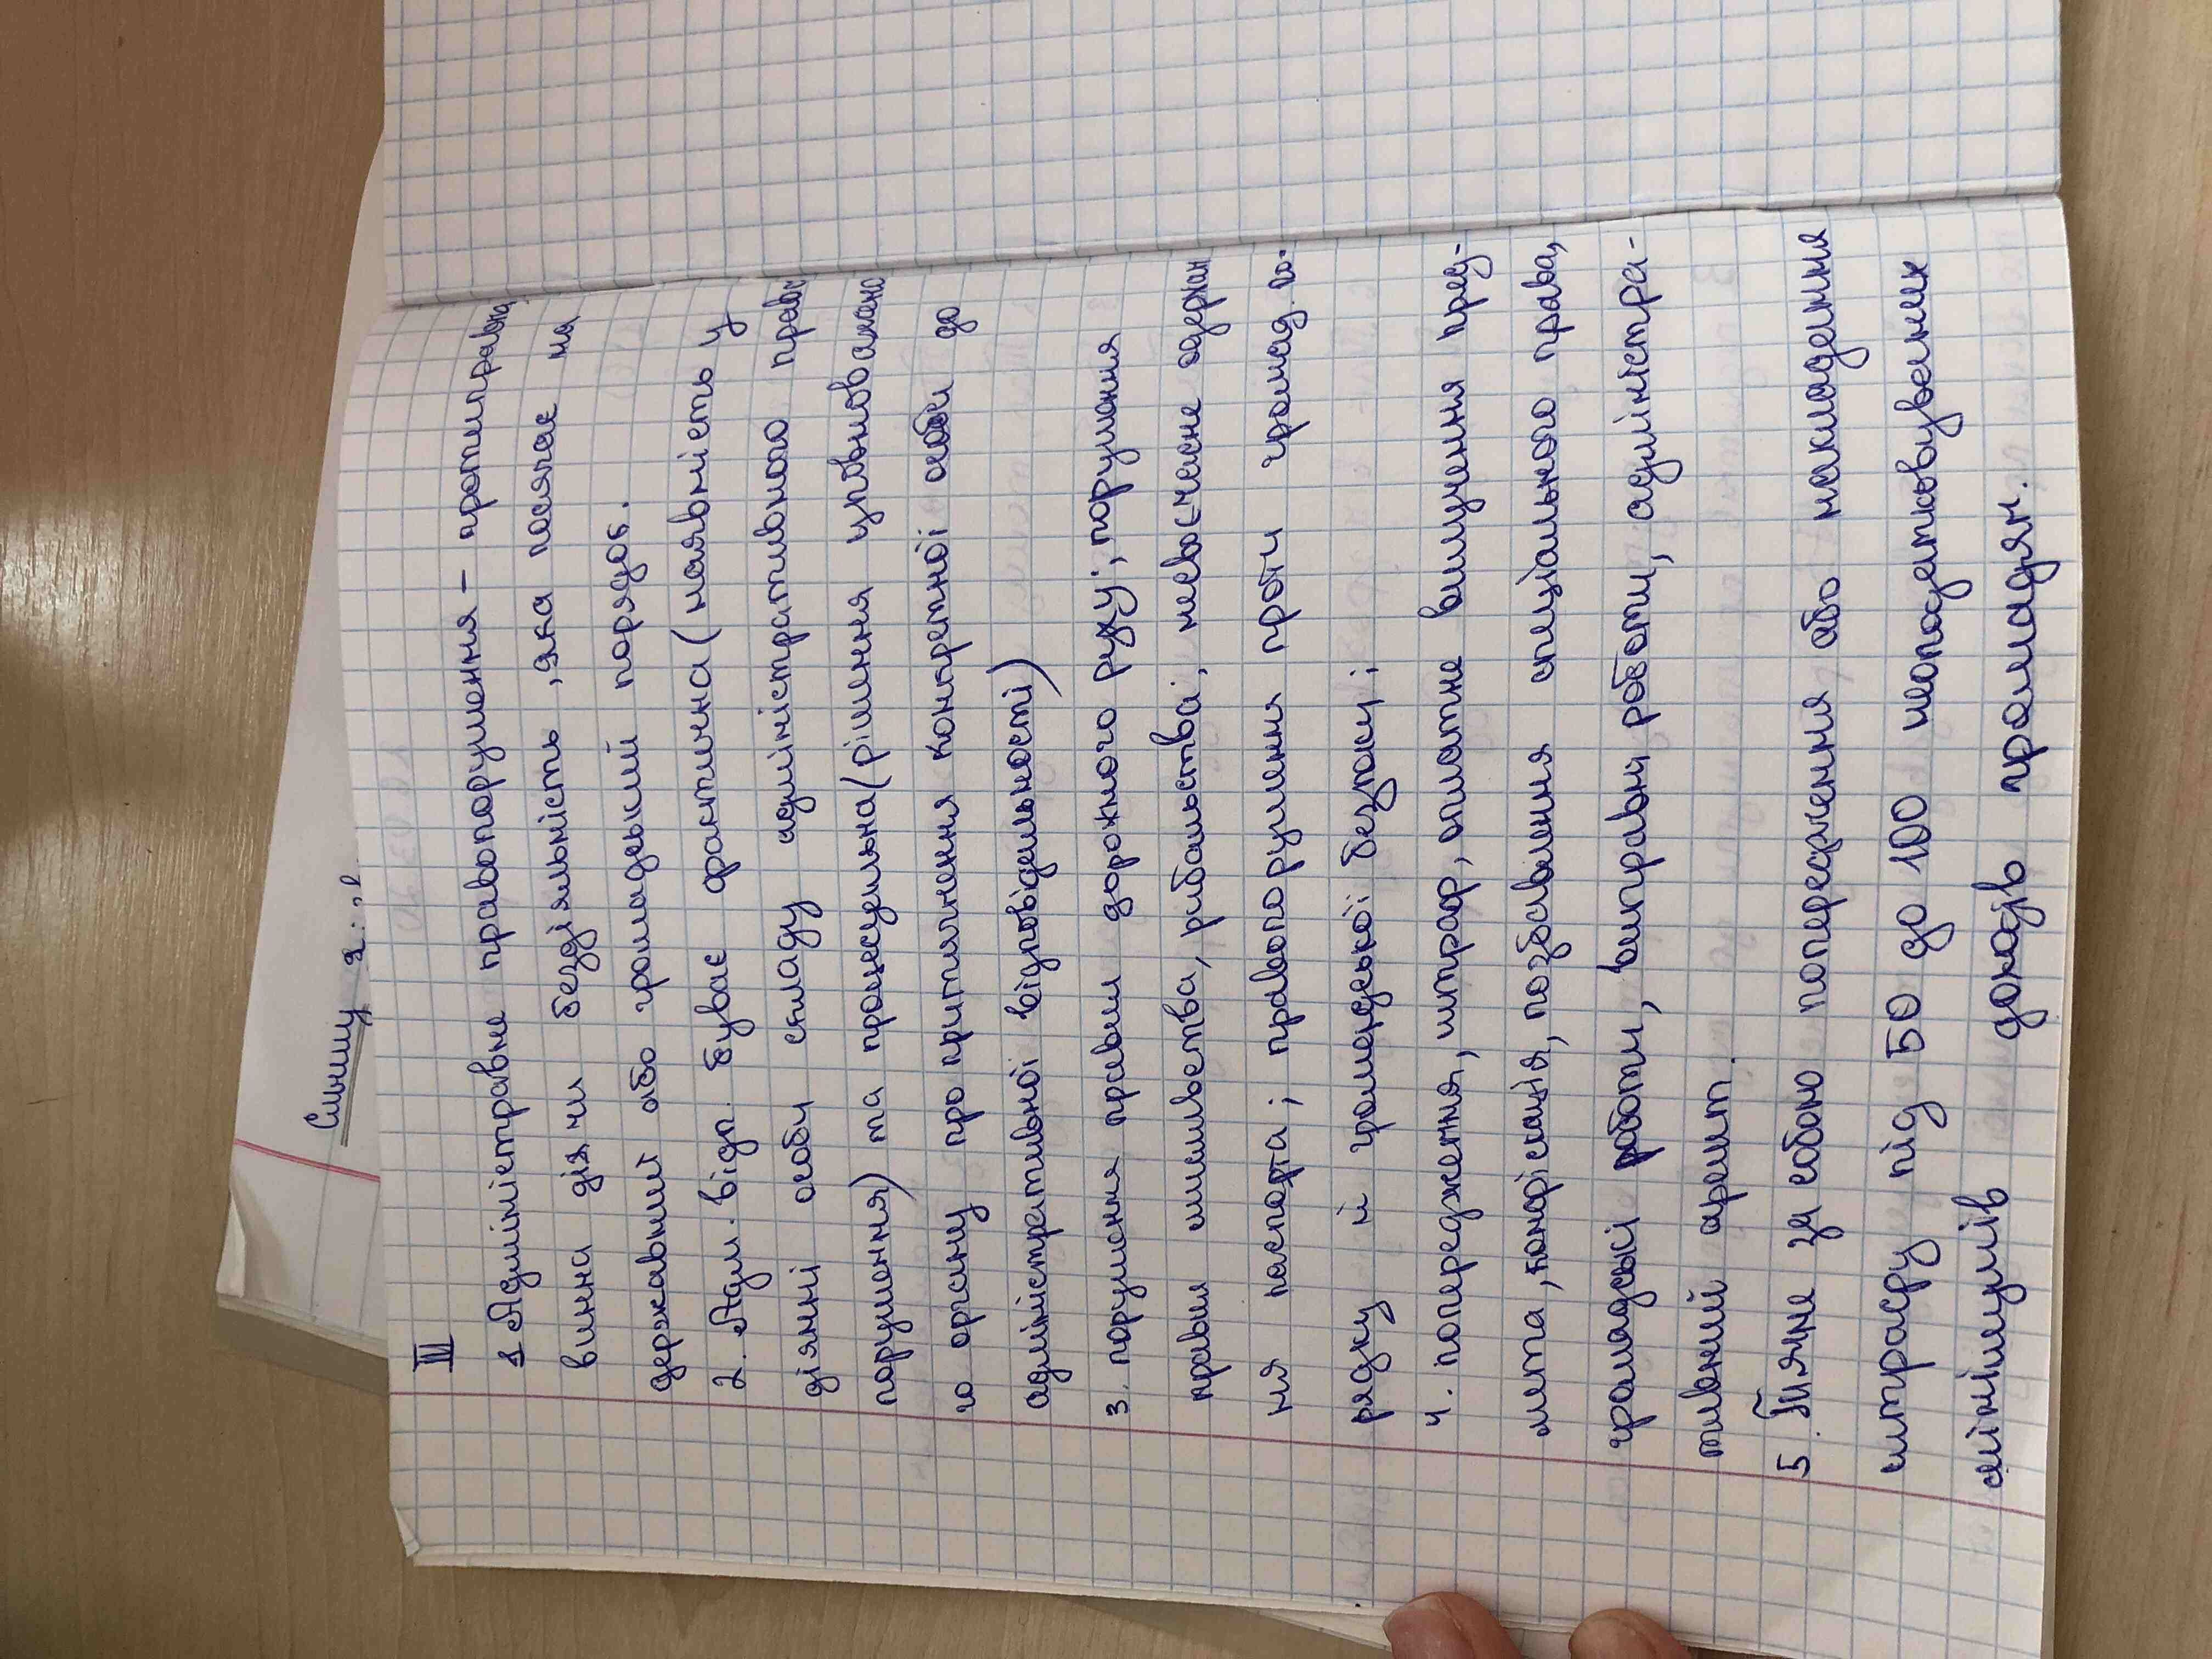 III
1. Адміністравне правопорушення - протиправна
винна дія чи бездіяльність, яка посягає на
державний або громадський порядок.
2. Адм. відп. буває фактична (наявність у
діянні особи складу адміністративного право
порушення) та процесуальна (рішення уповноважено
го органу про притягнення конкретної особи до
адміністративної відповідальності)
3. порушення правил дорожного руху; порушення
правил мисливства, рибальства; невчасне одержан
ня паспорта; правопорушення проти громад. по-
рядку й громадської безпеки;
4. попередження, штраф, оплатне вилучення пред-
мета, конфіскація, позбавлення спеціального права,
громадські роботи, виправні роботи, адміністра-
тивний арешт.
5. Тягне за собою попередження або накладення
штрафу від 50 до 100 неоподатковуваних
мінімумів доходів громадян.